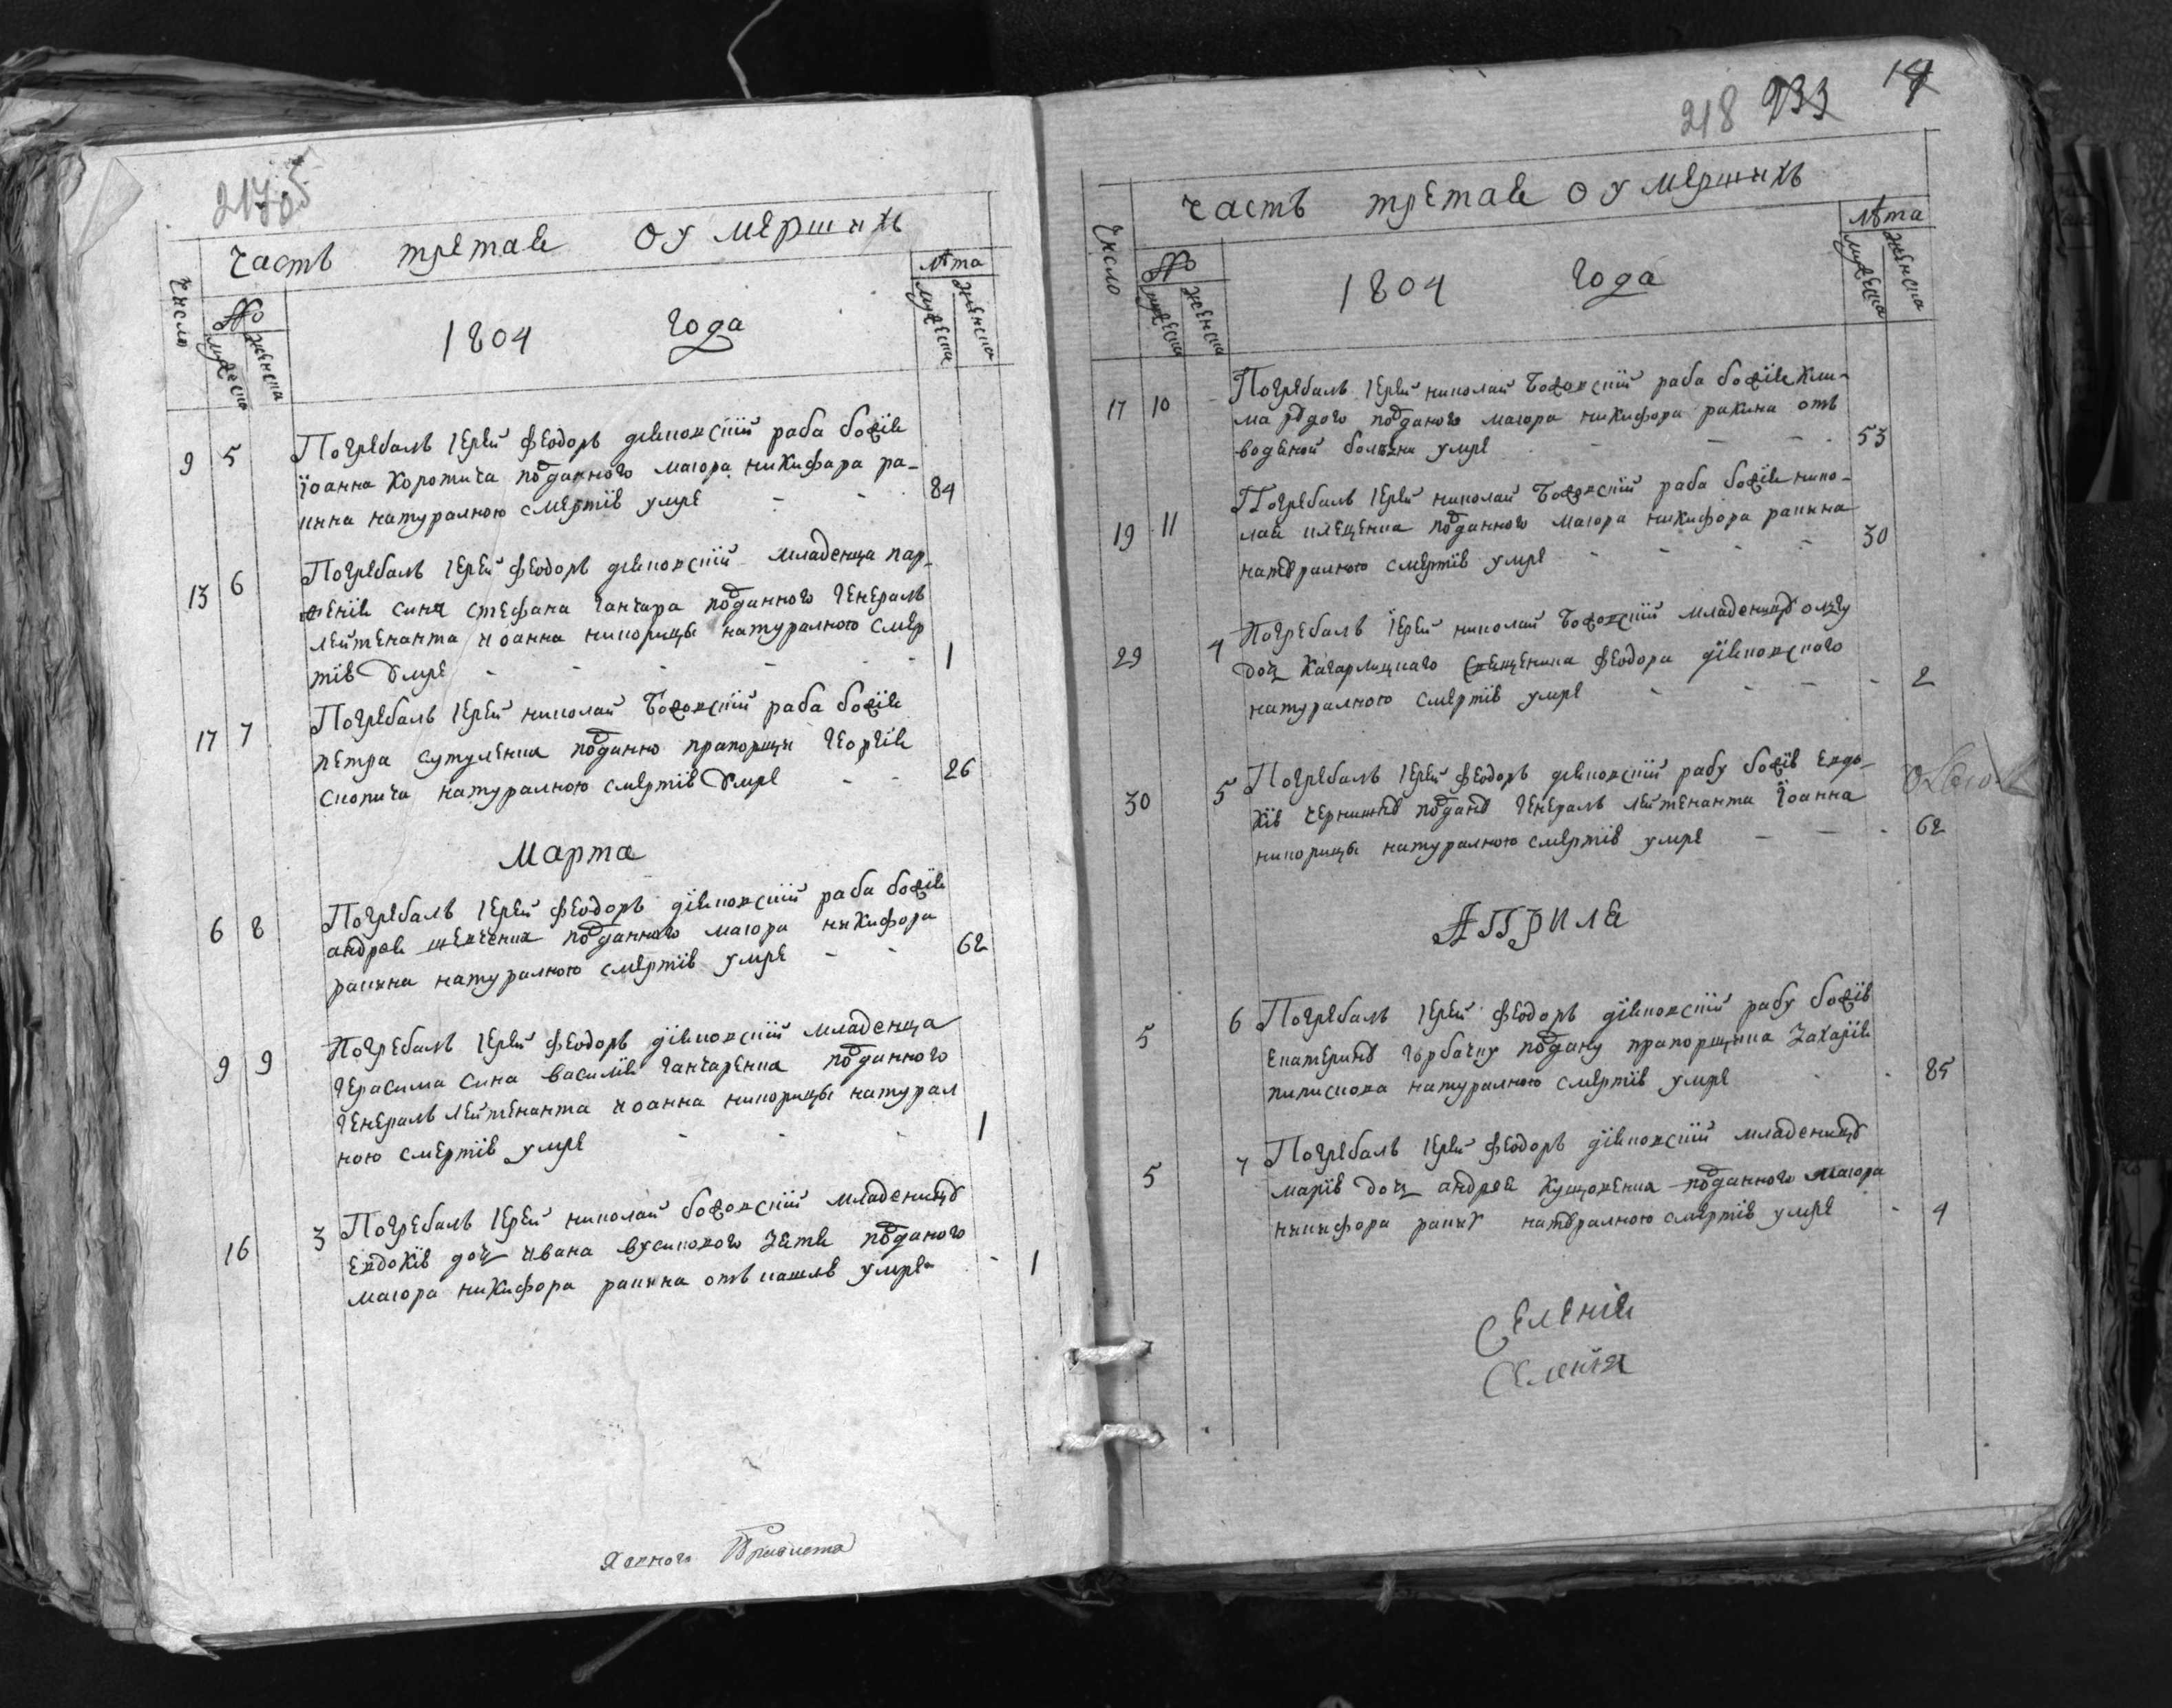 217
Часть третая о умершихъ
Число
№
мужеска
женска
1804 Года
лѣта
мужеска
женска
9 5 Погребалъ Іерей Феодоръ дяковскій раба божія
іоанна коротича подданного маіора никифара ра-
кина натуралною смертію умре - - 84
13 6 Погребалъ Іерей Феодоръ дяковскій младенца пар-
фенія сина стефана ганчара подданного Генералъ
лейтенанта иоанна никорицы натуралною смер
тію умре - - - - - 1
17 7 Погребалъ Іерей николай Божовскій раба божія
петра сутуленка поданно прапорщи Георгія
натуралною смертію умре - - 26
Марта
6 8 Погребалъ Іерей феодоръ дяковскій раба божія
андрея шевченка подданного маіора никифора
ракина натуралною смертію умре - - 62
9 9 Погребалъ Іерей феодоръ дяковскій младенца
Герасима сина василія ганчаренка подданного
Генералъ Лейтенанта иоанна никорицы натурал
ною смертію умре - - - 1
16 3 Погребалъ Іерей николай божовскій младеницу
Евдокію доч ивана зятя поданого
маіора никифора ракина отъ кашля умре - 1
218 933 14
Часть третая о умершихъ
Число
№
мужеска
женска
1804 Года
лѣта
мужеска
женска
17 10 Погребалъ Іерей николай Божовскій раба божія кли-
ма поданого маіора никифора ракина отъ
водяной болѣзни умре - - - 53
19 11 Погребалъ Іерей николай Божовскій раба божія нико-
лая клещенка подданного маіора никифора ракина
натуралною смертію умре - - - - 30
29 4 Погребалъ Іерей николай Божовскій младеницу олгу
доч Кагарлицкаго Священика феодора дяковского
натуралною смертію умре - - - - 2
30 5 Погребалъ Іерей феодоръ дяковскій рабу божію евдо-
кію чернишку поданну Генералъ лейтенанта іоанна
никорицы натуралною смертію умре - - - 62
Априля
5 6 Погребалъ Іерей феодоръ дяковскій рабу божію
екатерину горбачку подану прапорщика захарія
пипискова натуралною смертію умре - - 85
5 7 Погребалъ Іерей феодоръ дяковскій младеницу
марію доч андрея кущовенка подданного маіора
никифора ракину натуралною смертію умре - 4
Селенія
Селенія